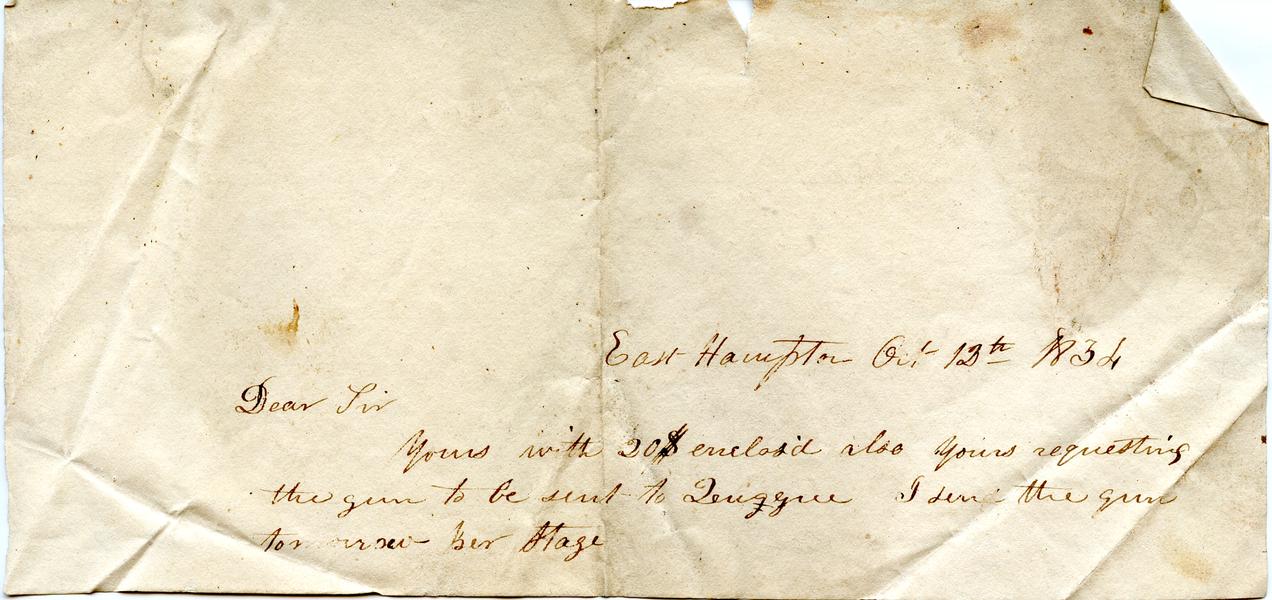 East Hampton Oct 13th 1834
Dear Sir
Yours with 20$ enclosd also yours requesting
the gun to be sent to Quoggue I send the gun
tomorrow per Stage